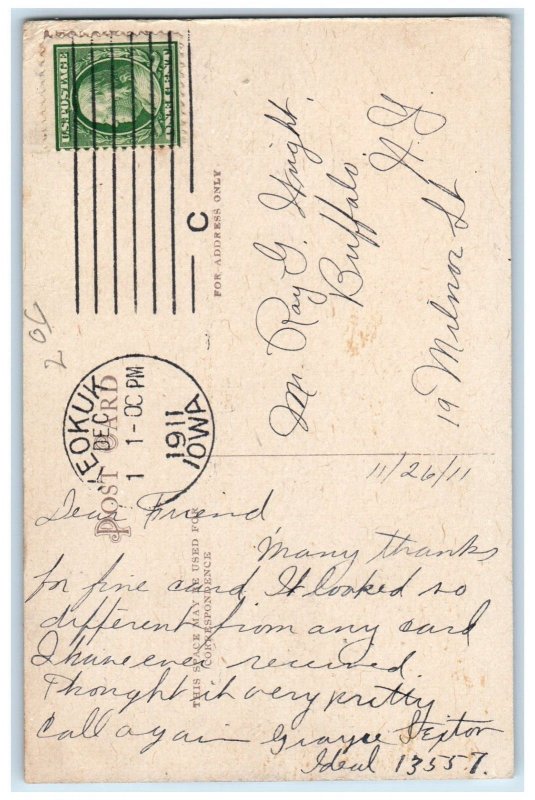 U.S. POSTAGE
ONE CENT
C
KEOKUK
DEC
1 1-00 PM
1911
IOWA
20¢
POST CARD
FOR ADDRESS ONLY
THIS SPACE MAY BE USED FOR
CORRESPONDENCE
Mr. Ray G. Knight,
Buffalo, N.Y.
19 Milnor St
11/26/11
Dear Friend
Many thanks
for fine card It looked so
different from any card
I have ever received.
Thought it very pretty
Call again Grayce Sexton
Ideal 13557.